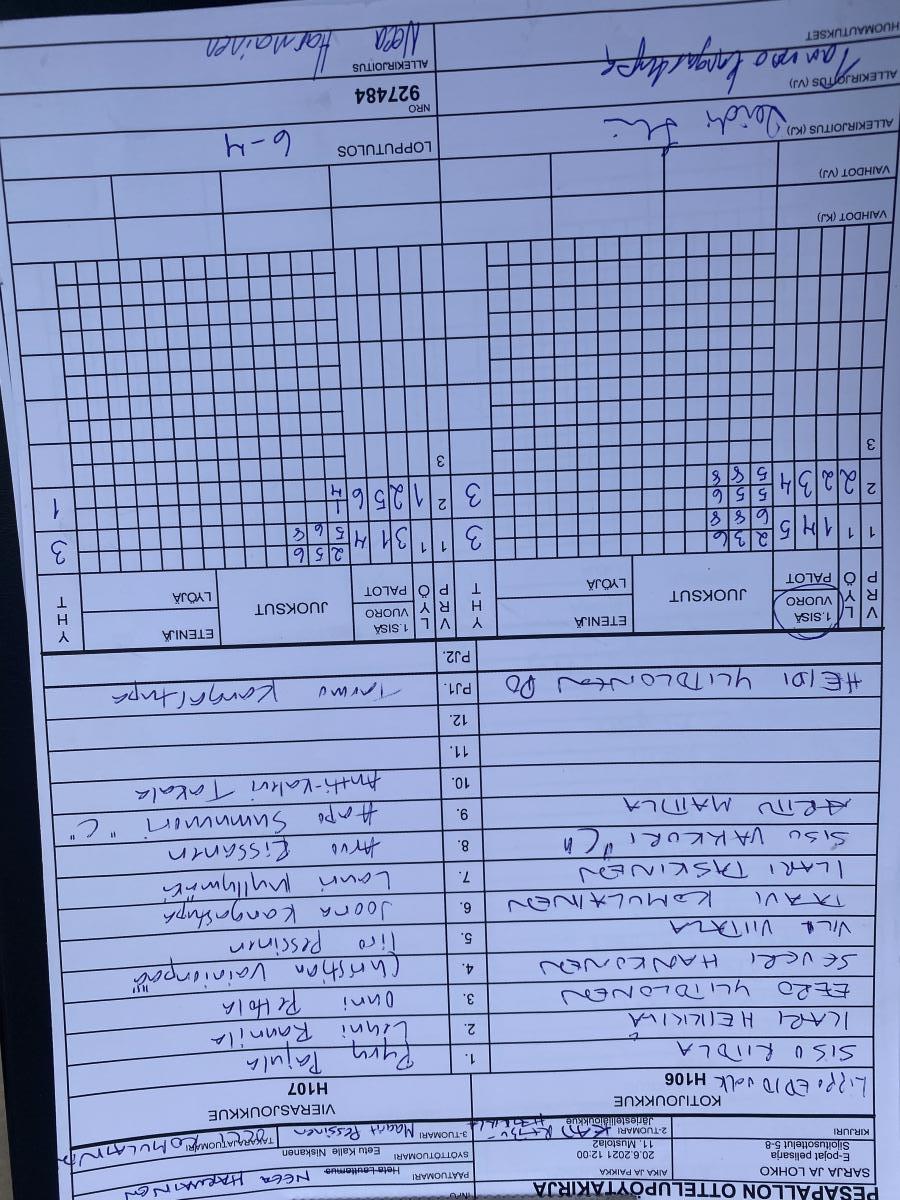 PESÄPALLON OTTELUPÖYTÄKIRJA
INFO
SARJA JA LOHKO
E-pojat pelisarja
Sijoitusottelut 5-8
AIKA JA PAIKKA
20.6.2021 12:00
11. Mustola2
PÄÄTUOMARI Heta Lauttamus NEEA HARMAINEN
SYÖTTÖTUOMARI Eetu Kalle Niskanen
KIRJURI
2-TUOMARI
Järjestelijäjoukkue
3-TUOMARI Maarit Pessinen
TAKARAJATUOMARI KOMULAINEN
KOTIJOUKKUE
H106
VIERASJOUKKUE
H107
SISU RITOLA 1. Pyry Pajula
ILARI HEIKKILÄ 2. Leuni Rannila
EERO YLITOLONEN 3. Onni Peltola
SEVERI HANNONEN 4. Christian Vainionpää
VILI VIITALA 5. Iiro Pessinen
TAAVI KOMULAINEN 6. Joona Kangastupa
ILARI TASKINEN 7. Lauri Myllymäki
SISU VAKKURI "C" 8. Arvo Rissanen
ARTTU MATTILA 9. Aapo Summanen "C"
10. Antti-Kalvi Takala
11.
12.
HEIDI YLITOLONEN PJ1. Tarmo Kangastupa
PJ2.
V P R L Y Ö 1.SISÄ VUORO PALOT JUOKSUT ETENIJÄ LYÖJÄ Y H T
V P R L Y Ö 1.SISÄ VUORO PALOT JUOKSUT ETENIJÄ LYÖJÄ Y H T
1 1 1 4 5 2 3 6 6 8 8 3
1 1 3 1 4 2 5 6 5 6 8 3
2 2 2 3 4 5 5 6 5 8 8 3
2 1 2 5 6 1 4 1
3
3
VAIHDOT (KJ)
VAIHDOT (VJ)
ALLEKIRJOITUS (KJ)
LOPPUTULOS 6-4
ALLEKIRJOITUS (VJ) Tarmo Kangastupa
NRO
927484
HUOMAUTUKSET
ALLEKIRJOITUS
Neea Harmainen